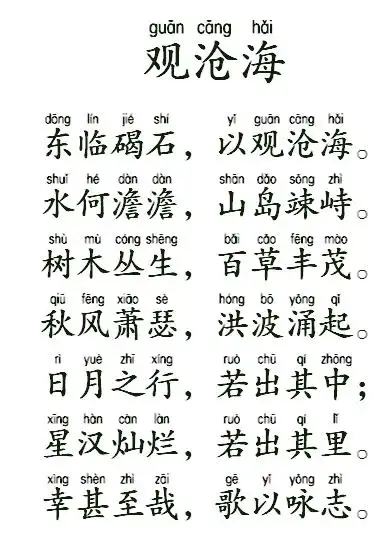 guān cāng hǎi
观沧海
dōng lín jié shí yǐ guān cāng hǎi
东临碣石，以观沧海。
shuǐ hé dàn dàn shān dǎo sǒng zhì
水何澹澹，山岛竦峙。
shù mù cóng shēng bǎi cǎo fēng mào
树木丛生，百草丰茂。
qiū fēng xiāo sè hóng bō yǒng qǐ
秋风萧瑟，洪波涌起。
rì yuè zhī xíng ruò chū qí zhōng
日月之行，若出其中；
xīng hàn càn làn ruò chū qí lǐ
星汉灿烂，若出其里。
xìng shèn zhì zāi gē yǐ yǒng zhì
幸甚至哉，歌以咏志。